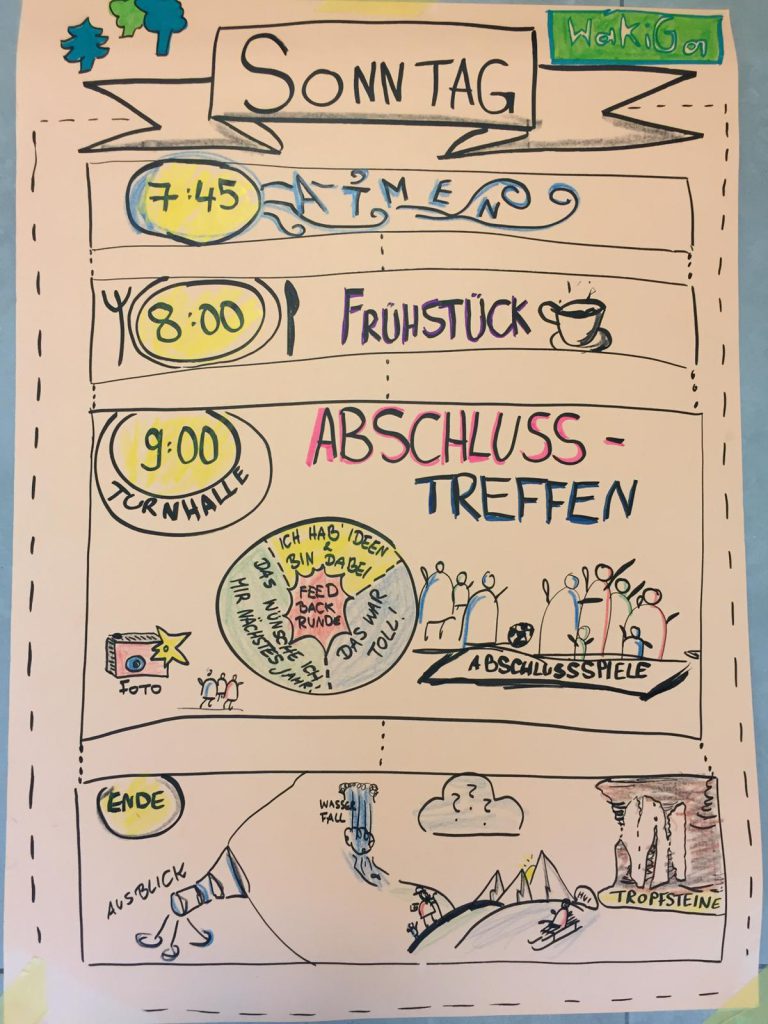 WaKiGa
SONNTAG
7:45 ATMEN
8:00 FRÜHSTÜCK
9:00
TURNHALLE
ABSCHLUSS-
TREFFEN
ICH HAB' IDEEN
&
BIN DABEI
DAS WÜNSCHE ICH
MIR NÄCHSTES JAHR!
FEED
BACK
RUNDE
DAS WAR
TOLL!
FOTO
ABSCHLUSSSPIELE
ENDE
AUSBLICK
WASSER
FALL
? ? ?
HUI
TROPFSTEINE